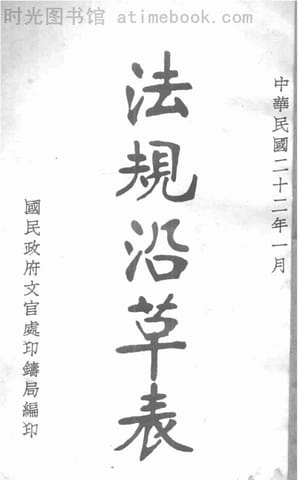 时光图书馆 atimebook.com
中華民國二十二年一月
法規沿革表
國民政府文官處印鑄局編印